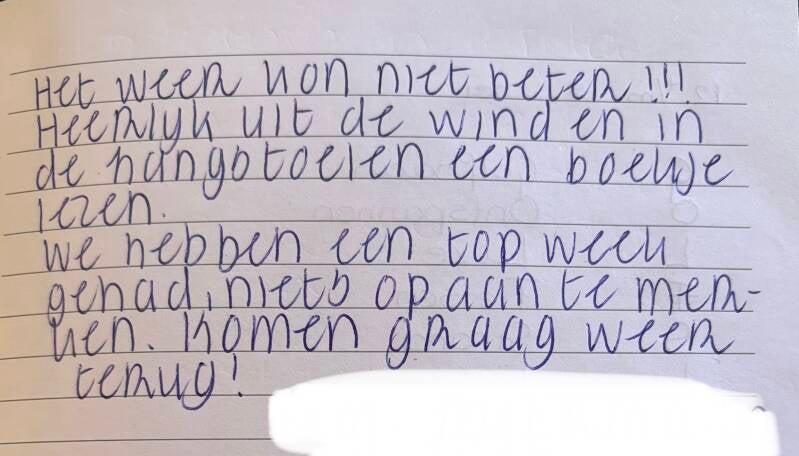 Het weer kon niet beter!!!
Heerlyk uit de wind en in
de hangstoelen een boekje
lezen.
We hebben een top week
gehad, niets op aan te mer-
ken. Komen graag weer
terug!